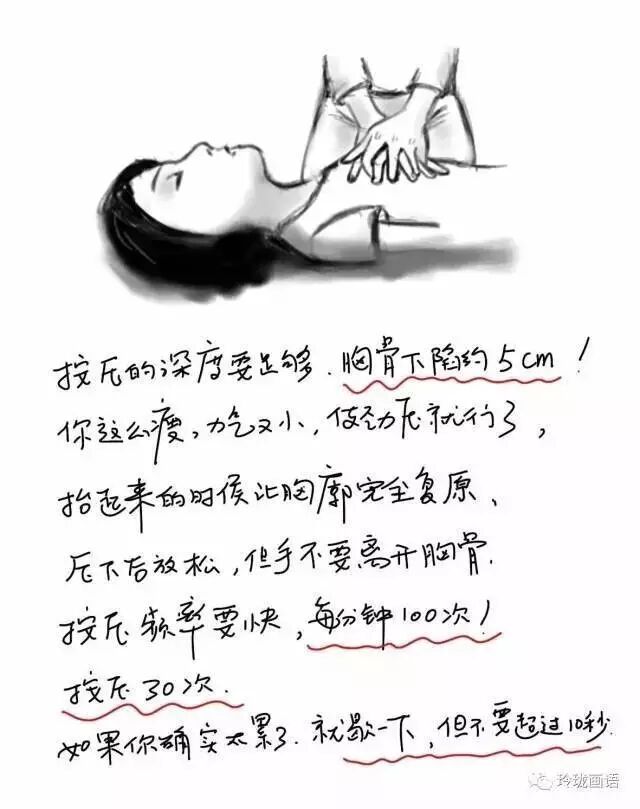 按压的深度要足够、胸骨下陷约5cm!
你这么瘦,力气又小,使劲压就行了,
抬起来的时候让胸廓完全复原、
压下后放松,但手不要离开胸骨.
按压频率要快,每分钟100次!
按压30次.
如果你确实太累了.就歇一下,但不要超过10秒.
玲珑画语